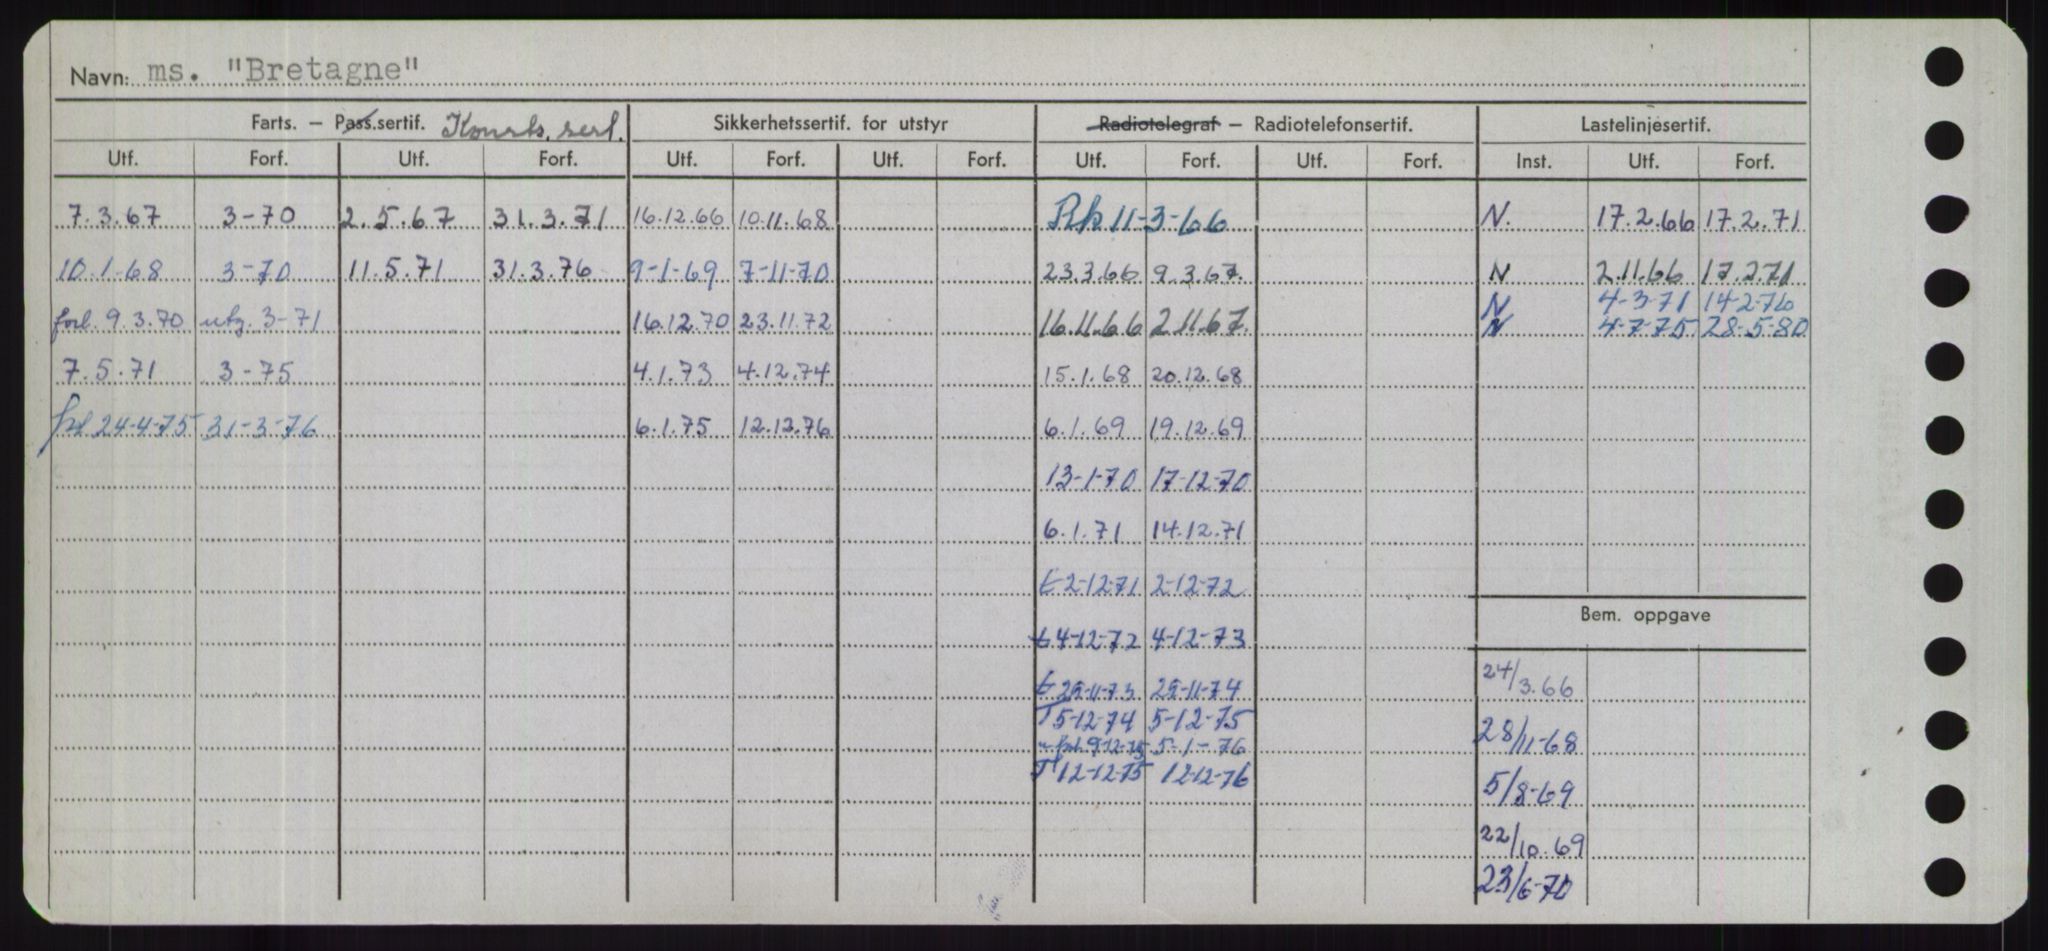 Navn: ms. "Bretagne"
Farts. – Pass.sertif. Konstr. sert. Sikkerhetssertif. for utstyr Radiotelegraf – Radiotelefonsertif. Lastelinjesertif.
Utf. Forf. Utf. Forf. Utf. Forf. Utf. Forf. Utf. Forf. Utf. Forf. Inst. Utf. Forf.
7.3.67 3-70 2.5.67 31.3.71 16.12.66 10.11.68 Rk 11-3-66 N. 17.2.66 17.2.71
10.1-68 3-70 11.5.71 31.3.76 9-1-69 7-11-70 23.3.66 9.3.67. N 2.11.66 17.2.71
N 4-3-71 14-2-76
forl. 9.3.70 utg. 3-71 16.12.70 23.11.72 16.11.66 2.11.67. N 4-7-75 28-5-80
7.5.71 3-75 4.1.73 4.12.74 15.1.68 20.12.68
frl 24-4-75 31-3-76 6.1.75 12.12.76 6.1.69 19.12.69
13-1-70 17-12-70
6.1.71 14.12.71
t 2-12-71 2-12-72
Bem. oppgave
t 4-12-72 4-12-73
24/3.66
t 29-11-73 29-11-74
T 5-12-74 5-12-75
28/11-68
frl. 9-12-75 5-1-76
Tf 12-12-75 12-12-76
5/8-69
22/10.69
23/6-70